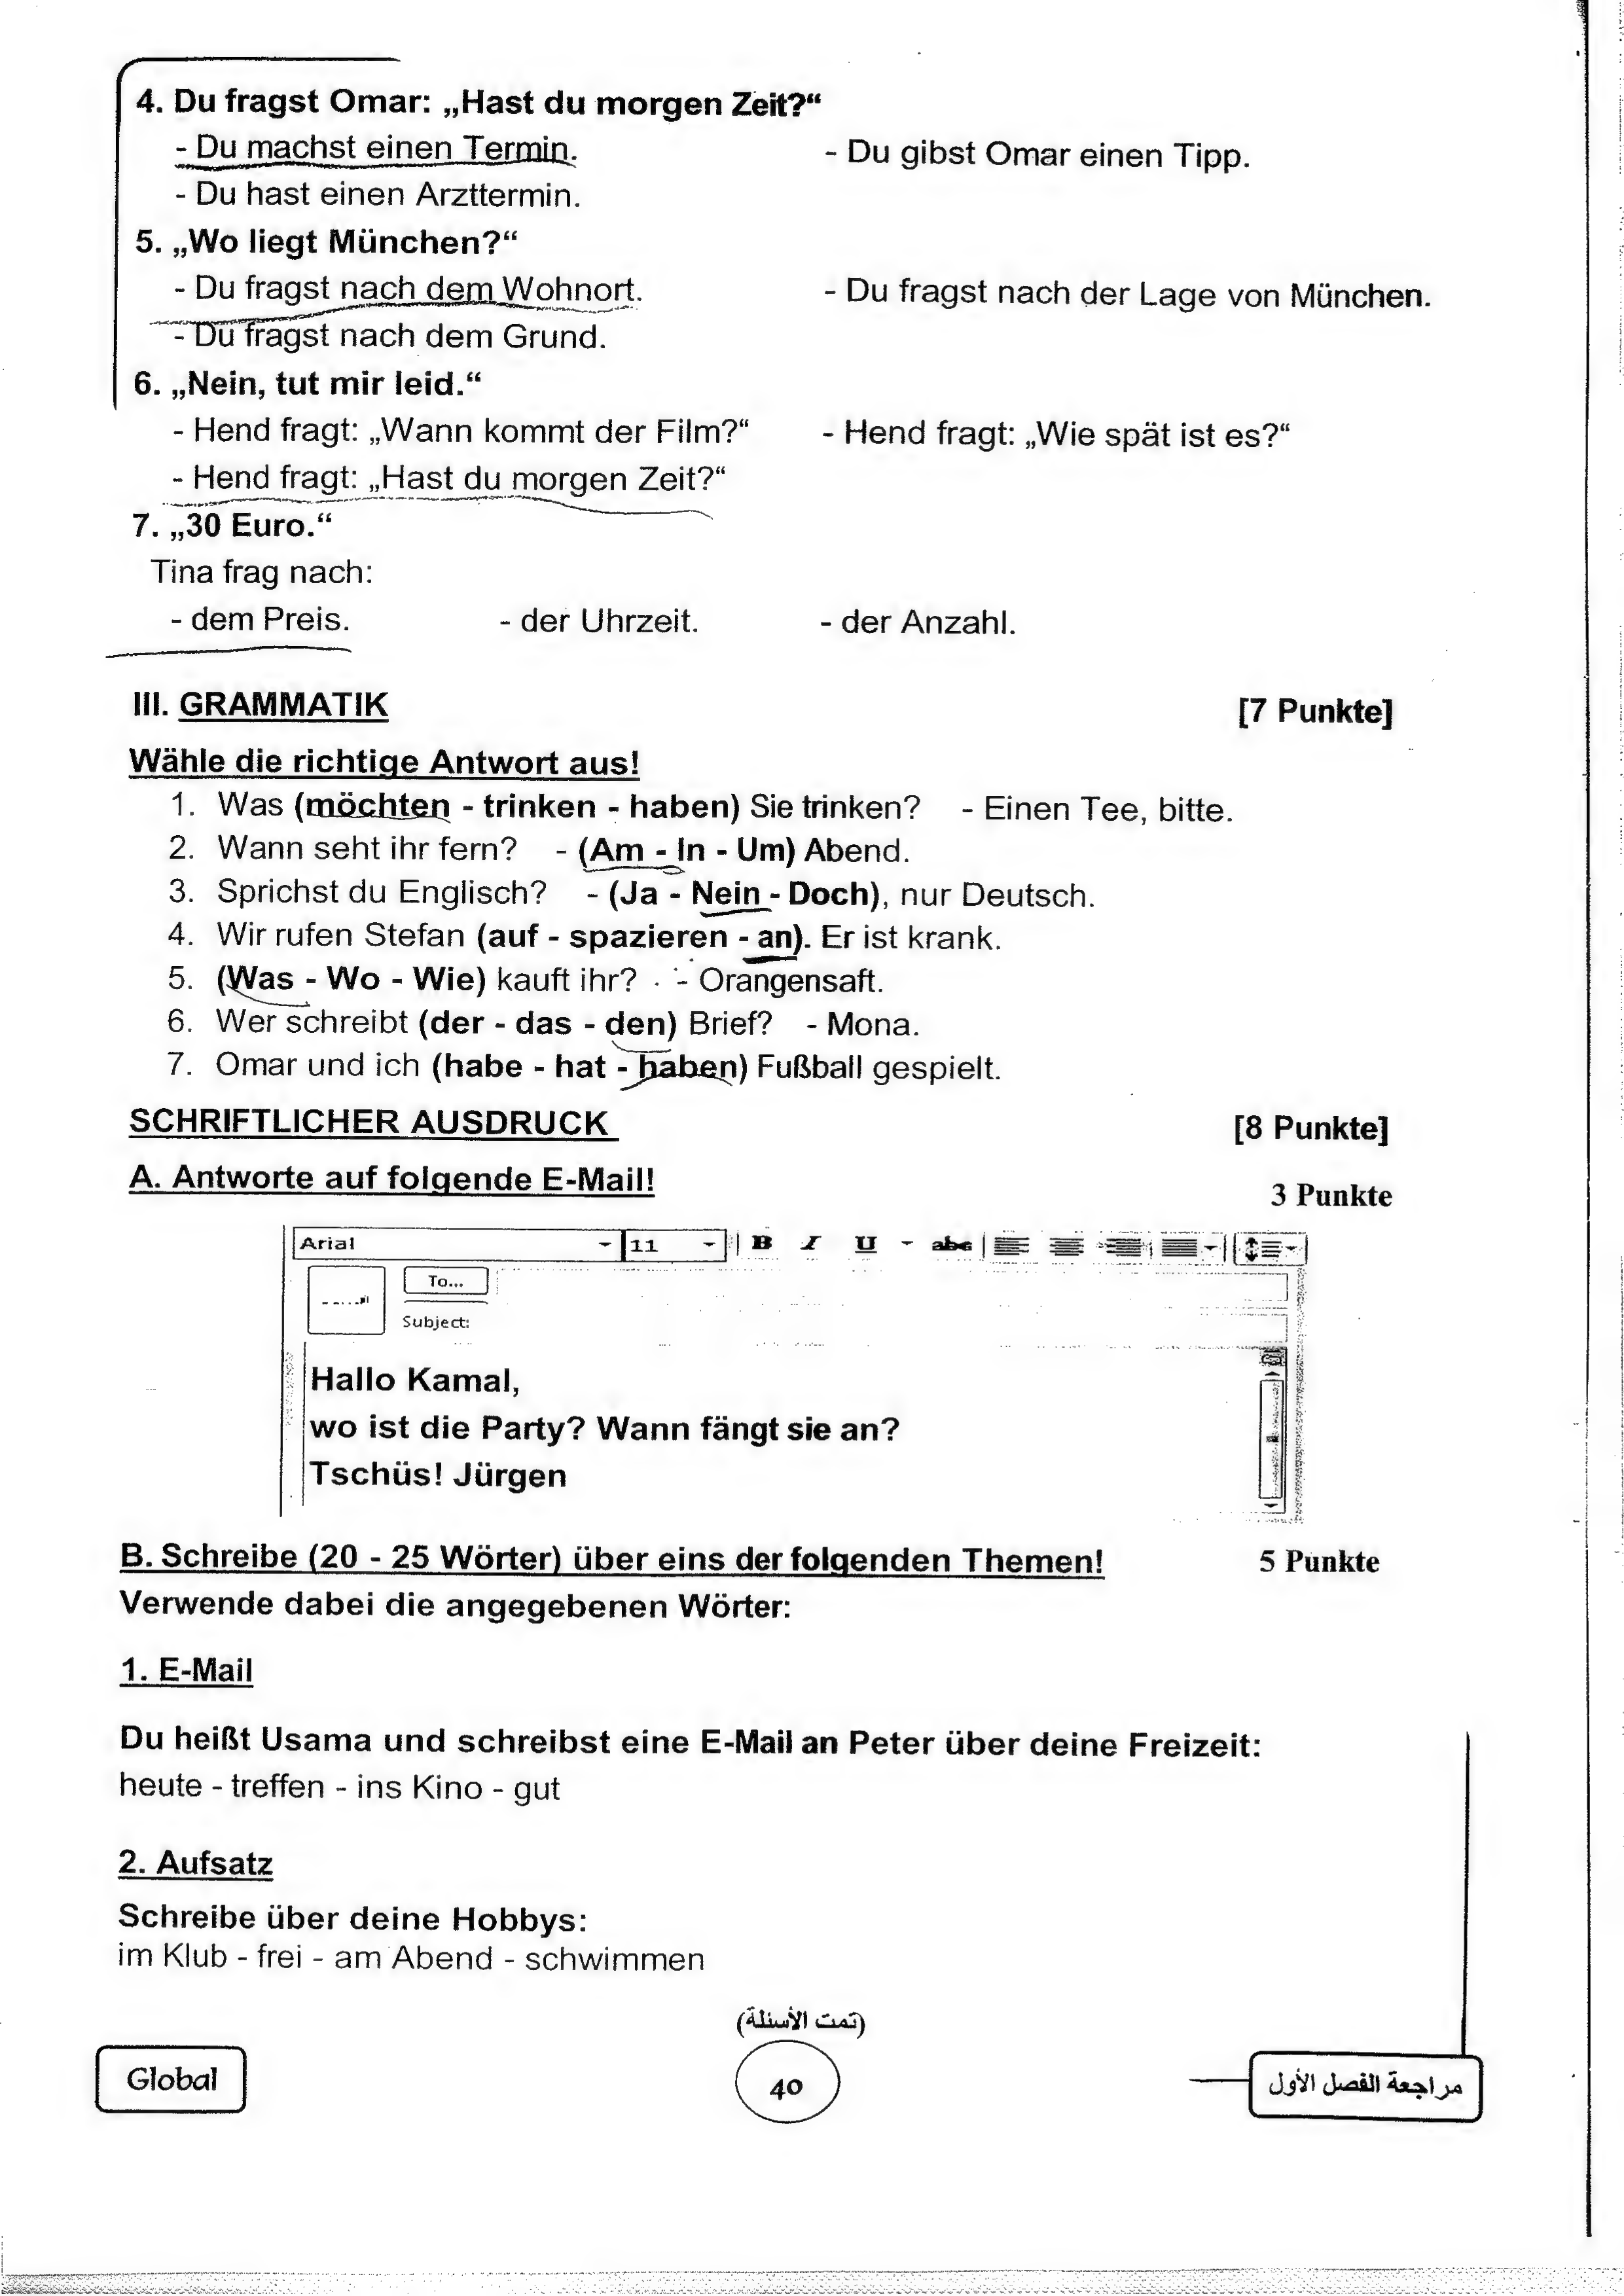 4. Du fragst Omar: „Hast du morgen Zeit?“
- Du machst einen Termin. - Du gibst Omar einen Tipp.
- Du hast einen Arzttermin.
5. „Wo liegt München?“
- Du fragst nach dem Wohnort. - Du fragst nach der Lage von München.
- Du fragst nach dem Grund.
6. „Nein, tut mir leid.“
- Hend fragt: „Wann kommt der Film?“ - Hend fragt: „Wie spät ist es?“
- Hend fragt: „Hast du morgen Zeit?“
7. „30 Euro.“
Tina frag nach:
- dem Preis. - der Uhrzeit. - der Anzahl.
III. GRAMMATIK [7 Punkte]
Wähle die richtige Antwort aus!
1. Was (möchten - trinken - haben) Sie trinken? - Einen Tee, bitte.
2. Wann seht ihr fern? - (Am - In - Um) Abend.
3. Sprichst du Englisch? - (Ja - Nein - Doch), nur Deutsch.
4. Wir rufen Stefan (auf - spazieren - an). Er ist krank.
5. (Was - Wo - Wie) kauft ihr? - Orangensaft.
6. Wer schreibt (der - das - den) Brief? - Mona.
7. Omar und ich (habe - hat - haben) Fußball gespielt.
SCHRIFTLICHER AUSDRUCK [8 Punkte]
A. Antworte auf folgende E-Mail! 3 Punkte
Arial 11 B I U abc
To...
Subject:
Hallo Kamal,
wo ist die Party? Wann fängt sie an?
Tschüs! Jürgen
B. Schreibe (20 - 25 Wörter) über eins der folgenden Themen! 5 Punkte
Verwende dabei die angegebenen Wörter:
1. E-Mail
Du heißt Usama und schreibst eine E-Mail an Peter über deine Freizeit:
heute - treffen - ins Kino - gut
2. Aufsatz
Schreibe über deine Hobbys:
im Klub - frei - am Abend - schwimmen
(تمت الأسئلة)
Global 40 مراجعة الفصل الأول